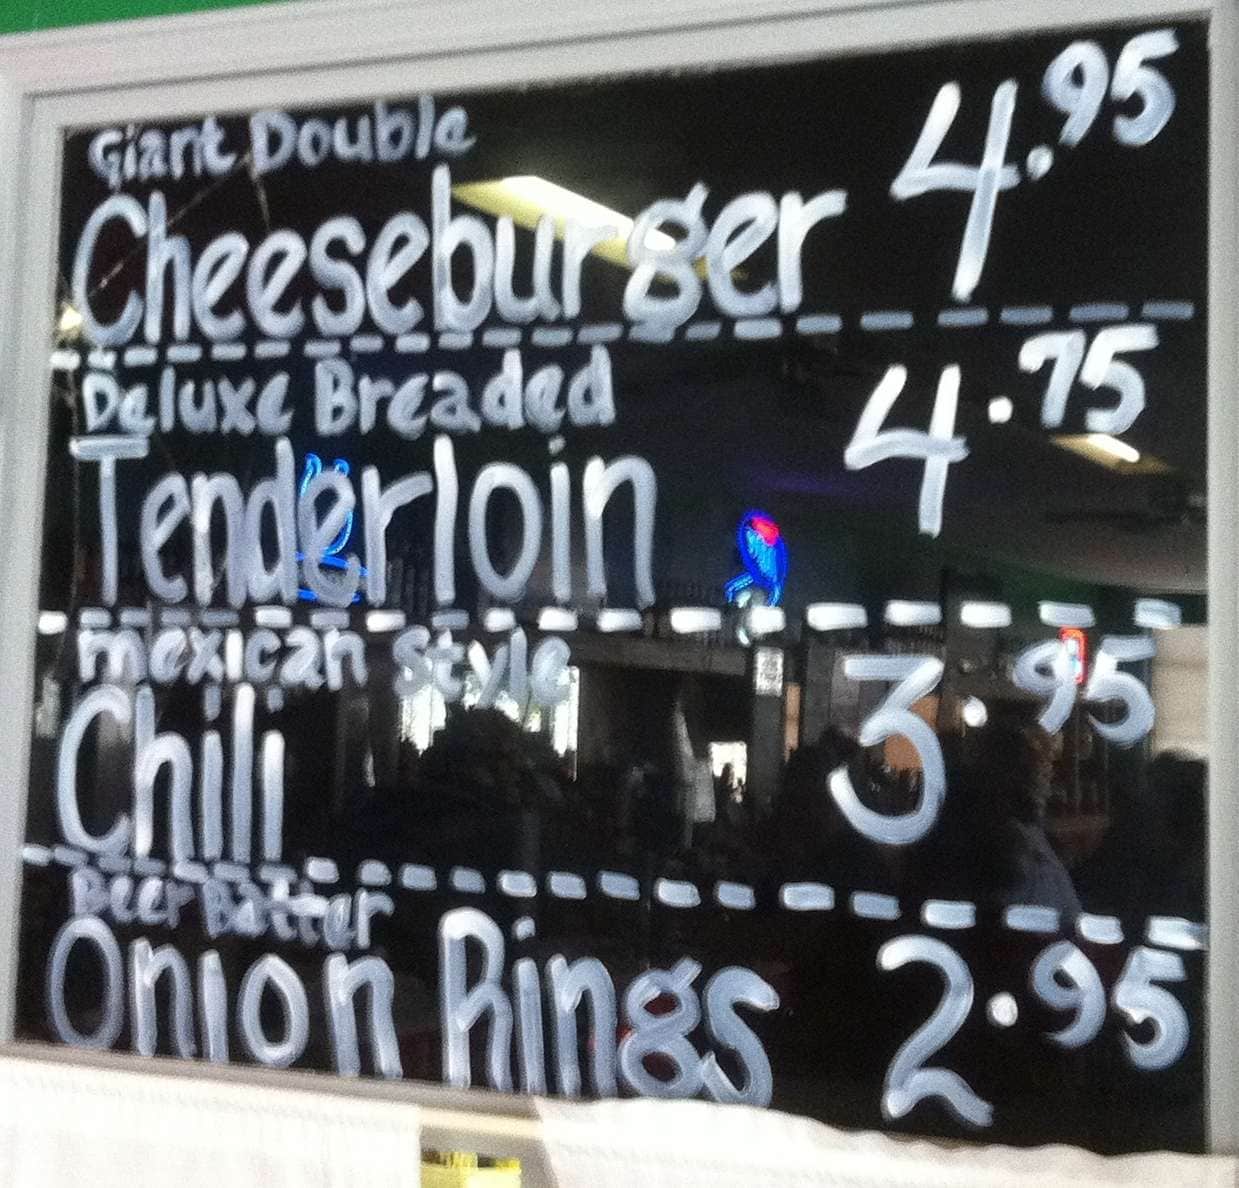 Giant Double
Cheeseburger 4.95
Deluxe Breaded
Tenderloin 4.75
mexican style
Chili 3.95
Beer Batter
Onion Rings 2.95